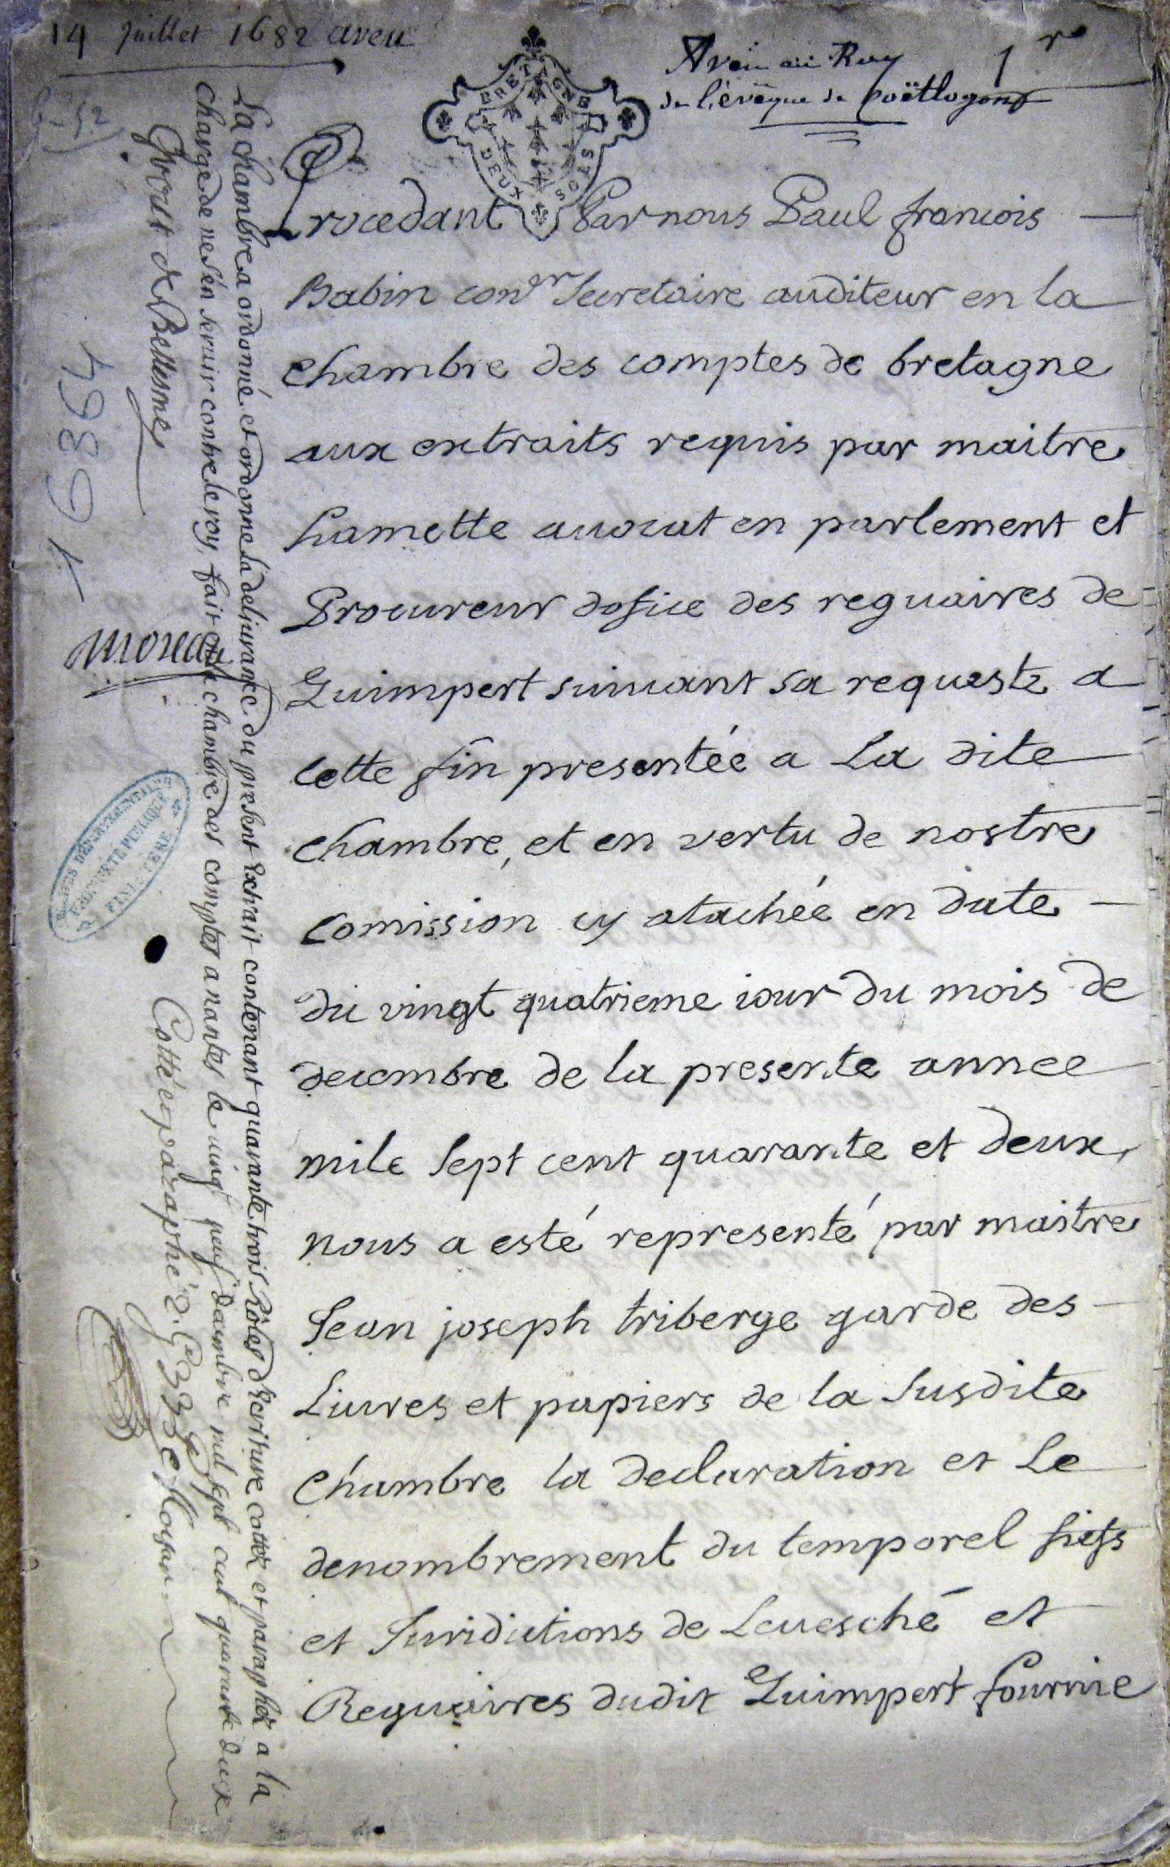 14 Juillet 1682 aveu
Aveu au Roy
de l'évêque de Coëtlogon
1r
BRETAGNE
DEUX SOLS
Procedant Par nous Paul francois
Babin conser Secretaire auditeur en la
chambre des comptes de bretagne
aux extraits requis par maitre
hamette auocat en parlement et
Procureur dofice des reguaires de
Quimpert suiuant sa requeste a
cette fin presentée a La dite
chambre, et en vertu de nostre
comission cy atachée en date
du vingt quatrieme iour du mois de
decembre de la presente annee
mile Sept cent quarante et deux,
nous a esté representé par maistre
Jean joseph triberge garde des
Liures et papiers de la Susdite
Chambre la declaration et Le
denombrement du temporel fiefs
et Juridictions de Leuesché et
Reguaires dudit Quimpert fournie
La chambre a ordonné et ordonne la deliurance du present Extrait contenant quarante trois Rôles d'Ecriture cottez et paraphez a la
charge de ne s'en seruir contre le roy, fait en la chambre des comptes a nantes le uingt neuf decembre mil sept cent quarante deux
Moreau
Cotté et paraphé
16364
ARCHIVES DÉPARTEMENTALES
FINISTÈRE